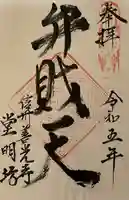 奉拝
弁財天
令和五年
信州善光寺
堂明坊